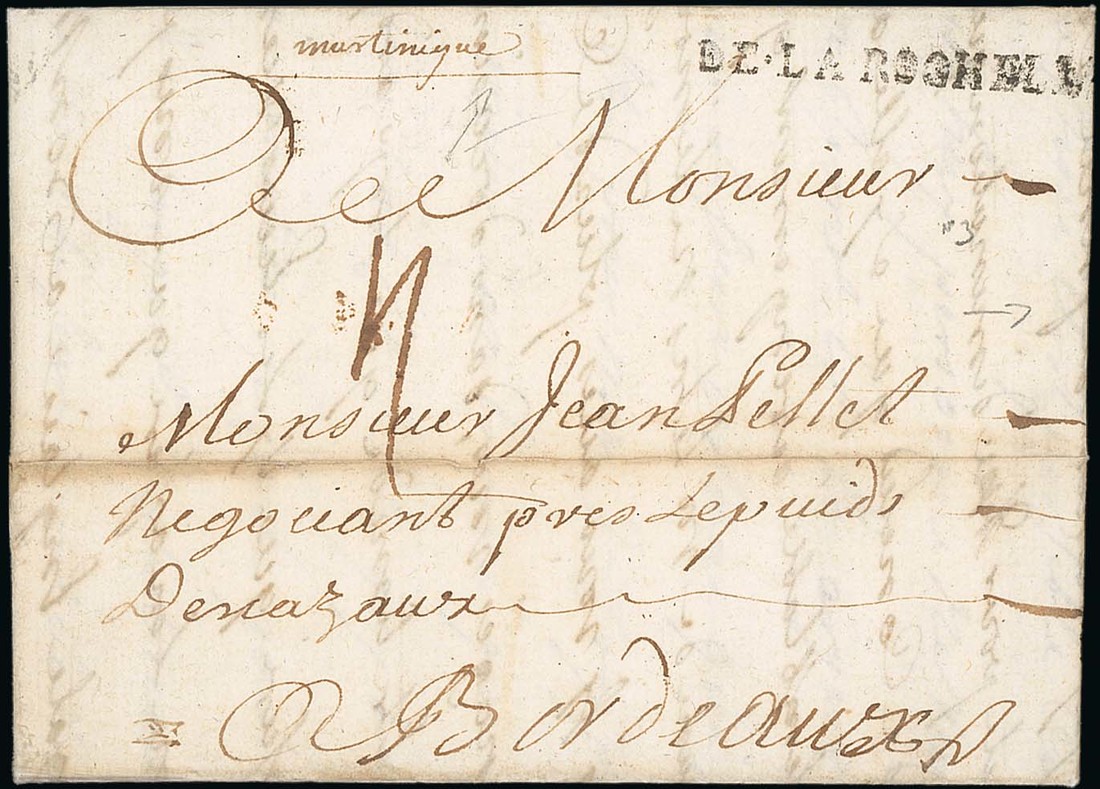 martinique
DE·LA ROCHELLE
A Monsieur
Monsieur Jean Pellet
Negociant pres Lepuids
Decazaux
A Bordeaux